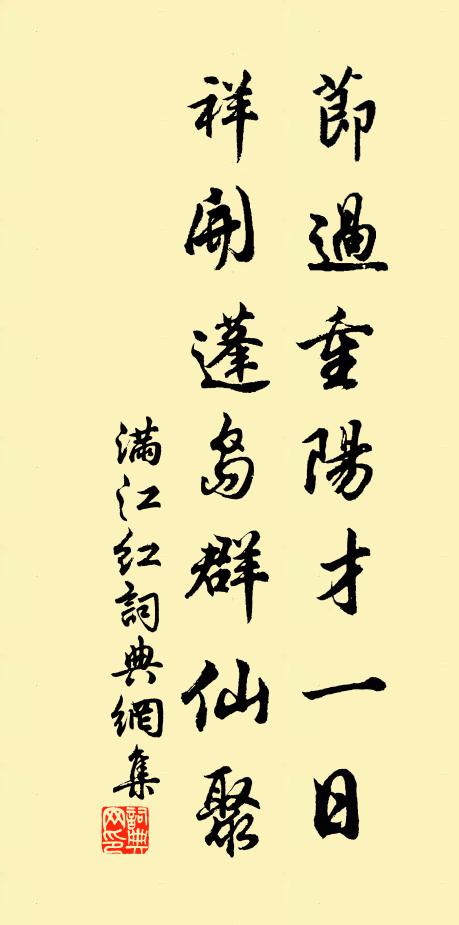 節過重陽才一日
祥開蓬島群仙聚
滿江紅詞典網集
詞典網印